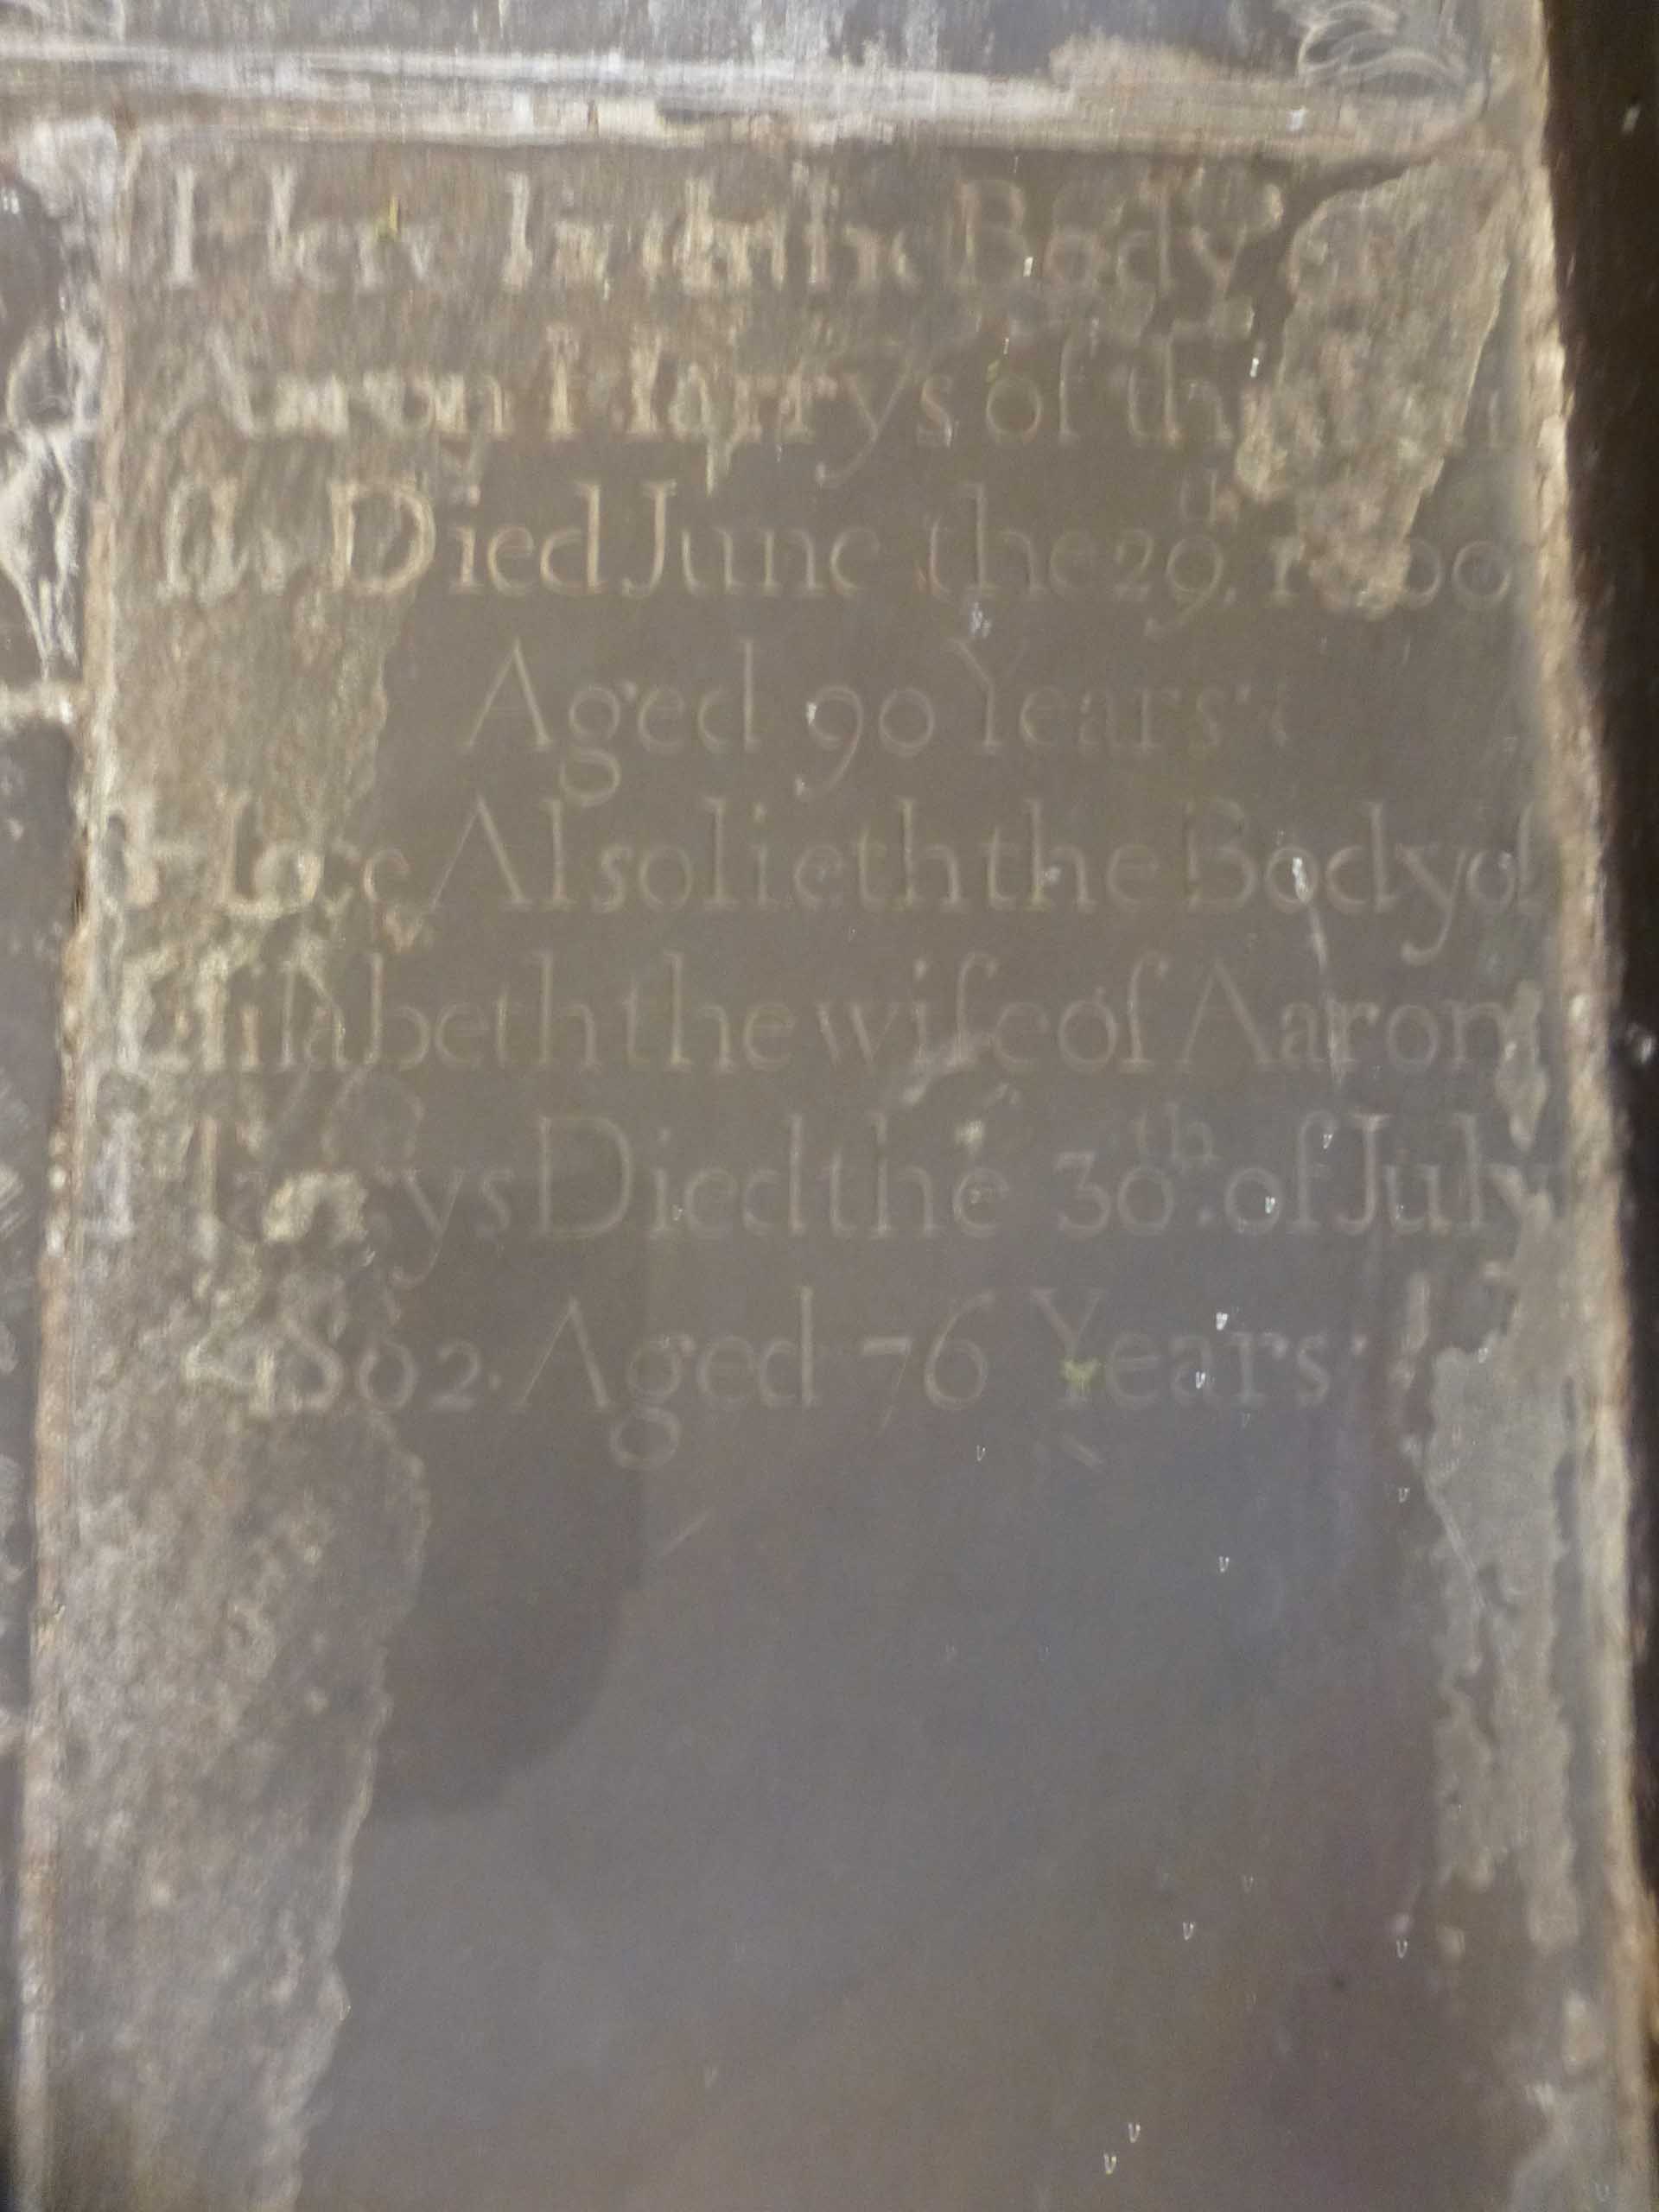 Here lieth the Body of
Aaron Harrys of this
Died June the 29th.
Aged 90 Years.
Here Also lieth the Body of
Elisabeth the wife of Aaron
Harrys Died the 30th. of July
1802. Aged 76 Years.